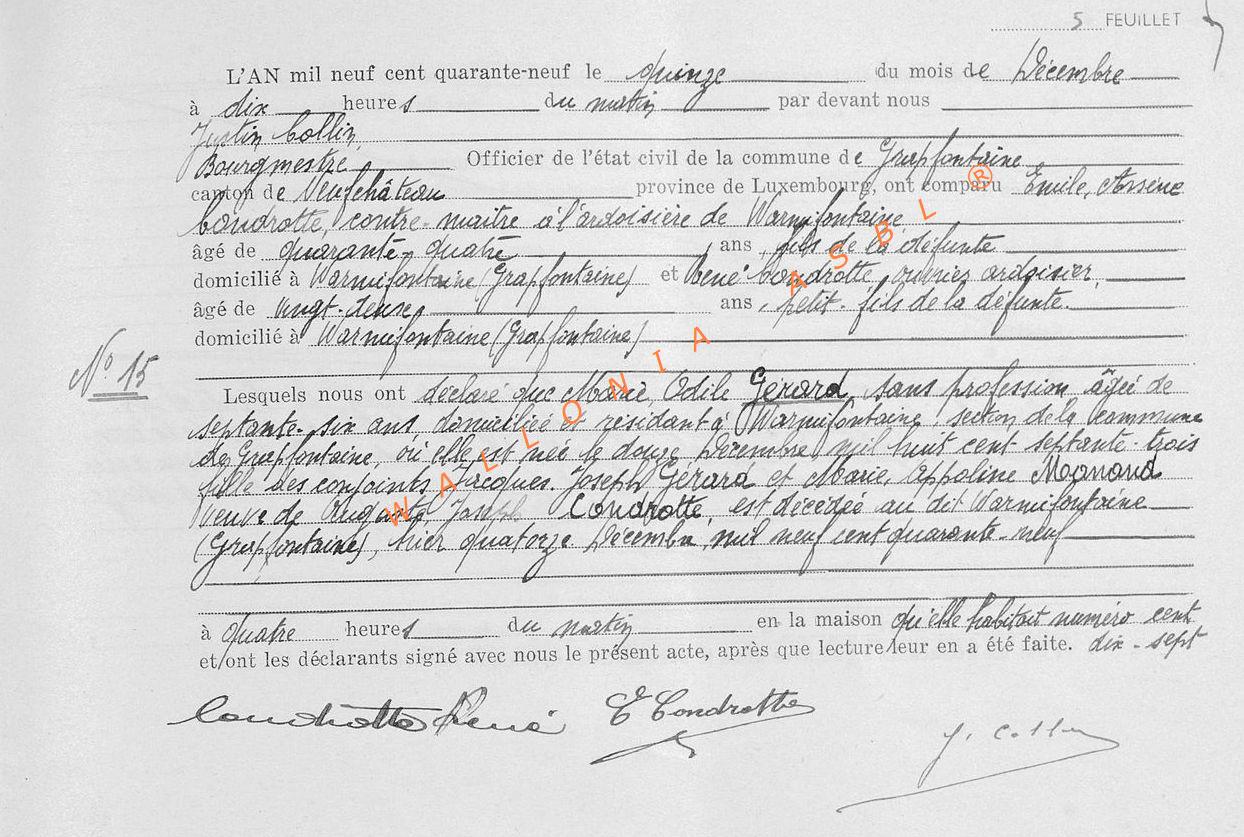 5 FEUILLET
L'AN mil neuf cent quarante-neuf le quinze du mois de Décembre
à dix heures du matin par devant nous
Justin Collin,
Bourgmestre Officier de l'état civil de la commune de Grapfontaine
canton de Neufchâteau province de Luxembourg, ont comparu Emile, Arsène
Condrotte, contre-maître à l'ardoisière de Warmifontaine
âgé de quarante-quatre ans, fils de la défunte
domicilié à Warmifontaine (Grapfontaine) et René Condrotte, ouvrier ardoisier,
âgé de vingt-deux ans, petit-fils de la défunte.
domicilié à Warmifontaine (Grapfontaine)
N° 15
Lesquels nous ont déclaré que Marie, Odile Gérard, sans profession, âgée de
septante-six ans, domiciliée et résidant à Warmifontaine, section de la commune
de Grapfontaine, où elle est née le douze Décembre mil huit cent septante-trois
fille des conjoints Jacques-Joseph Gérard et Marie, Appoline Magnond
veuve de Auguste Joseph Condrotte, est décédée au dit Warmifontaine
(Grapfontaine), hier quatorze Décembre mil neuf cent quarante-neuf
à quatre heures du matin en la maison qu'elle habitait numéro cent
et ont les déclarants signé avec nous le présent acte, après que lecture leur en a été faite. dix-sept
Condrotte René E Condrotte
J. Collin
WALLONIA ASBL ®